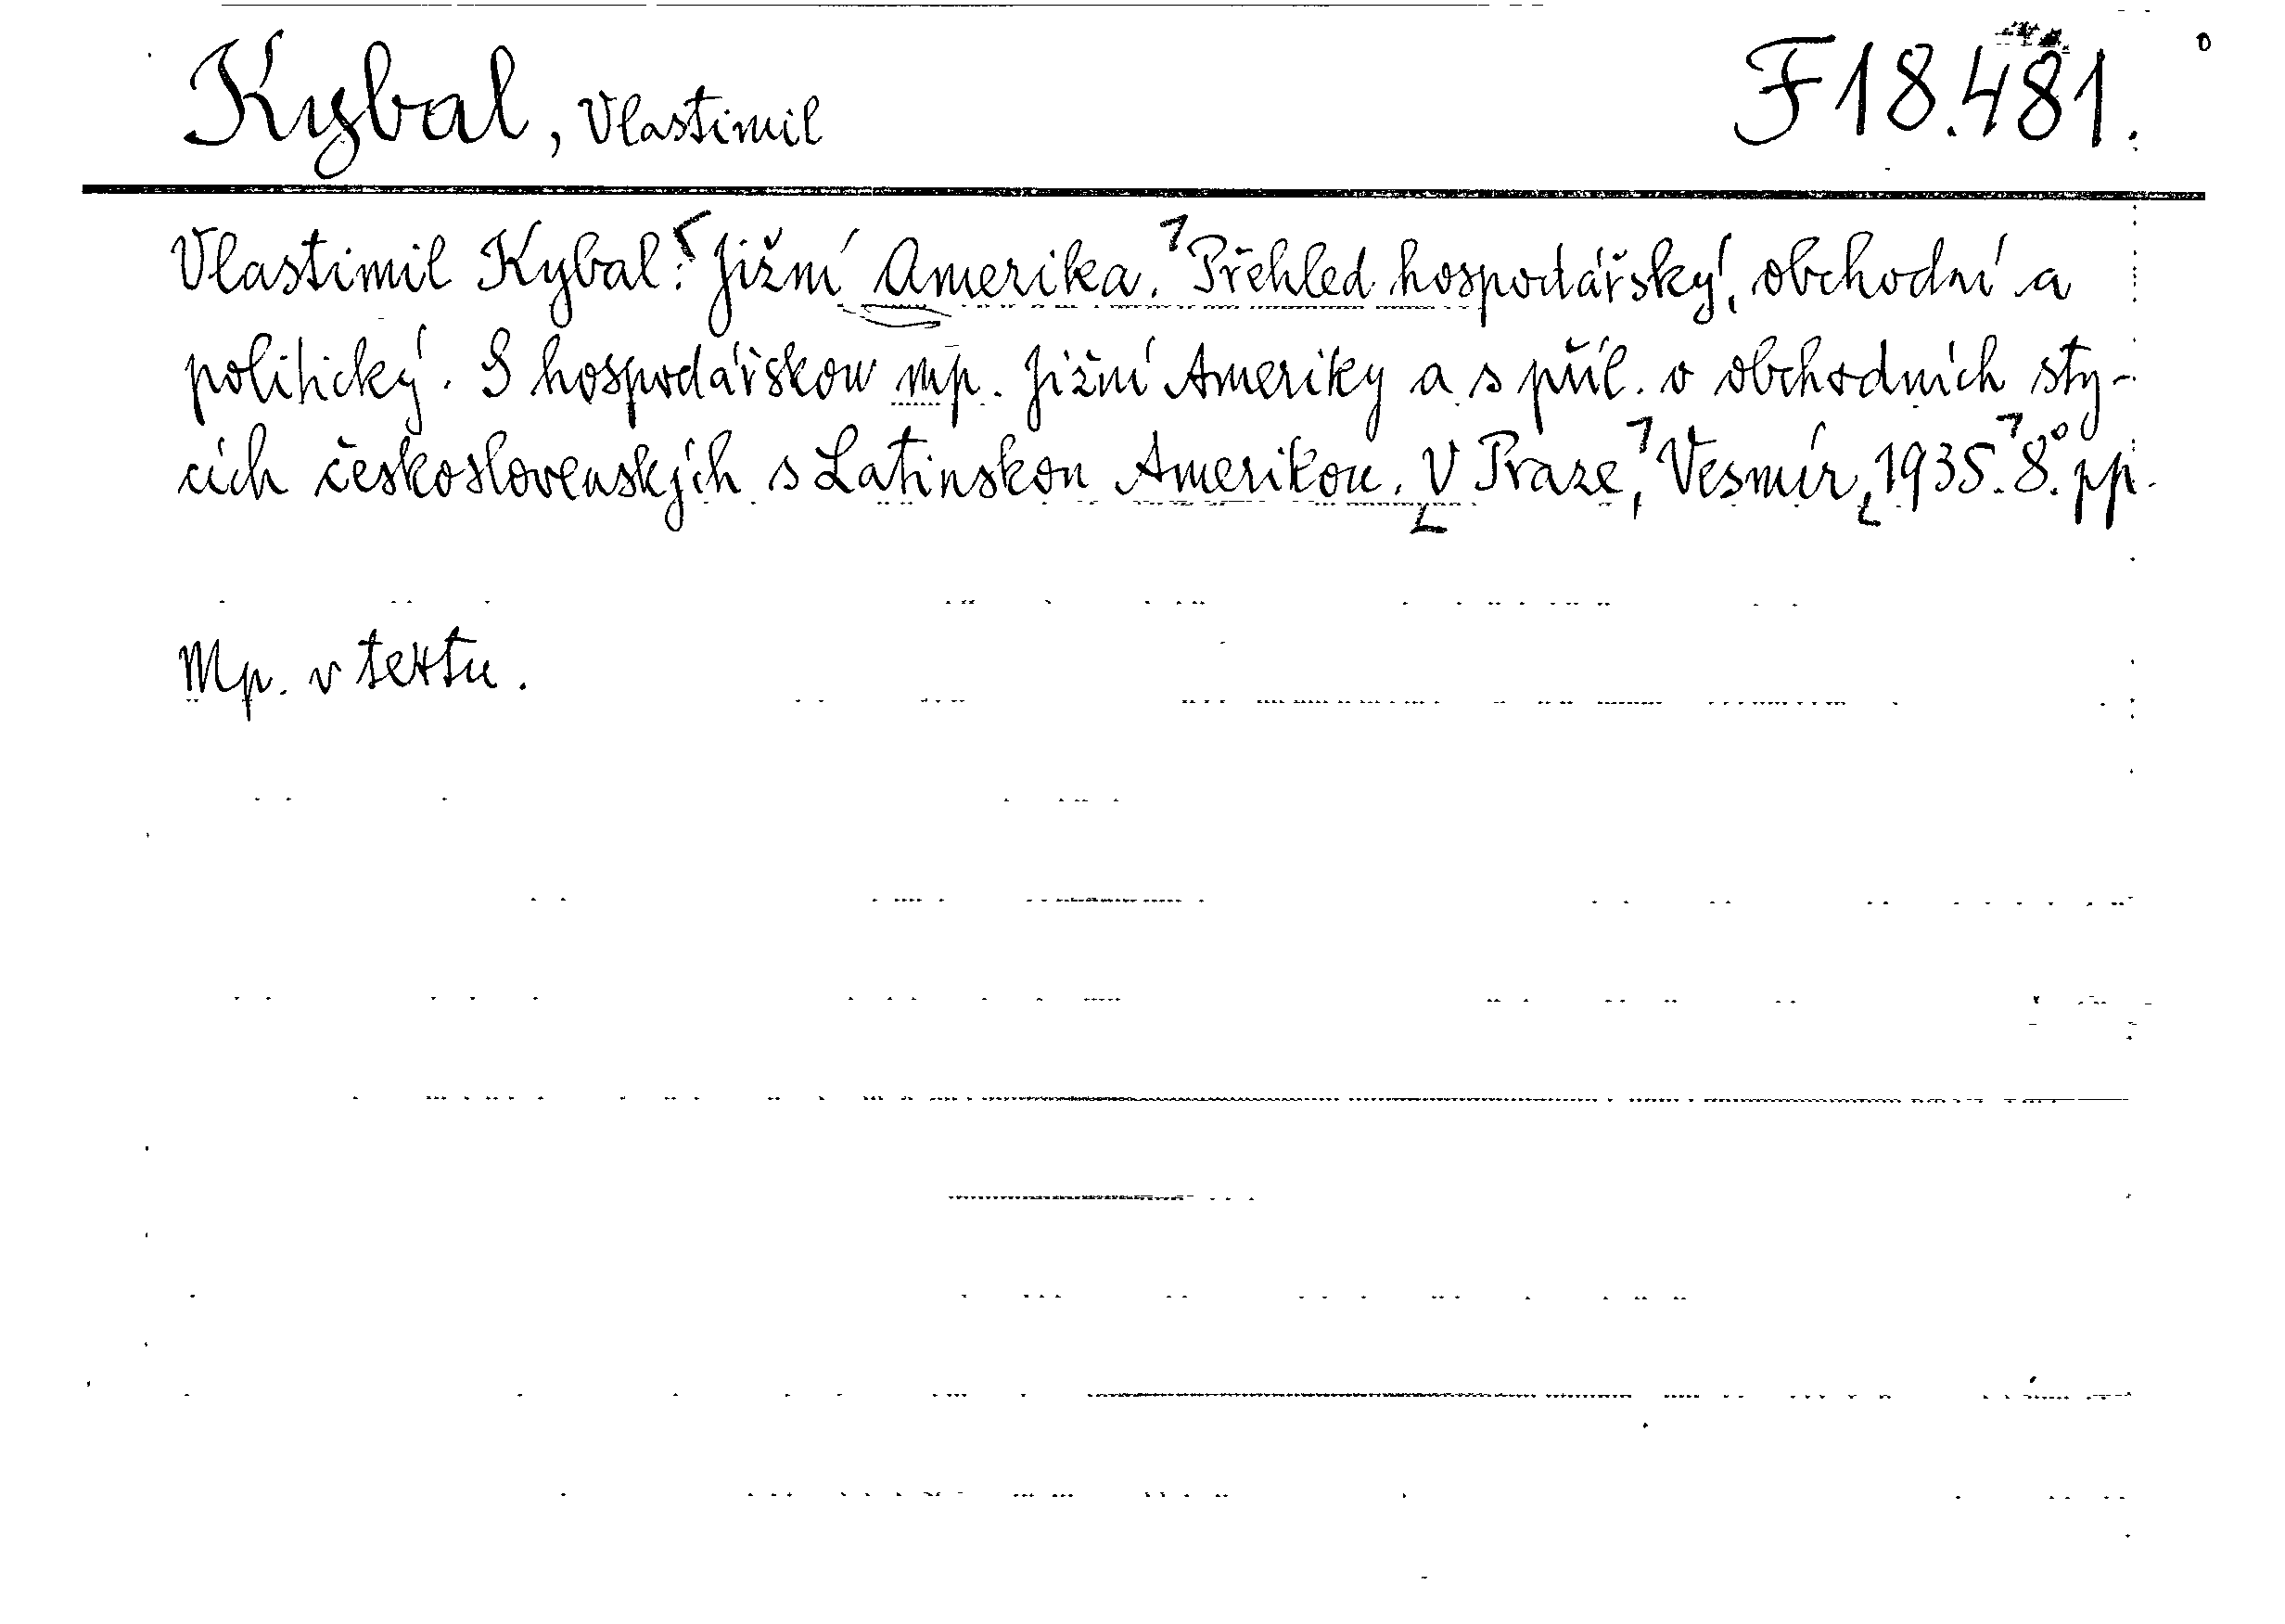 Kybal, Vlastimil F 18.481.
Vlastimil Kybal: Jižní Amerika. Přehled hospodářský, obchodní a
politický. S hospodářskou mp. Jižní Ameriky a s příl. o obchodních sty-
cích československých s Latinskou Amerikou. V Praze, Vesmír, 1935. 8°. pp.
Mp. v textu.